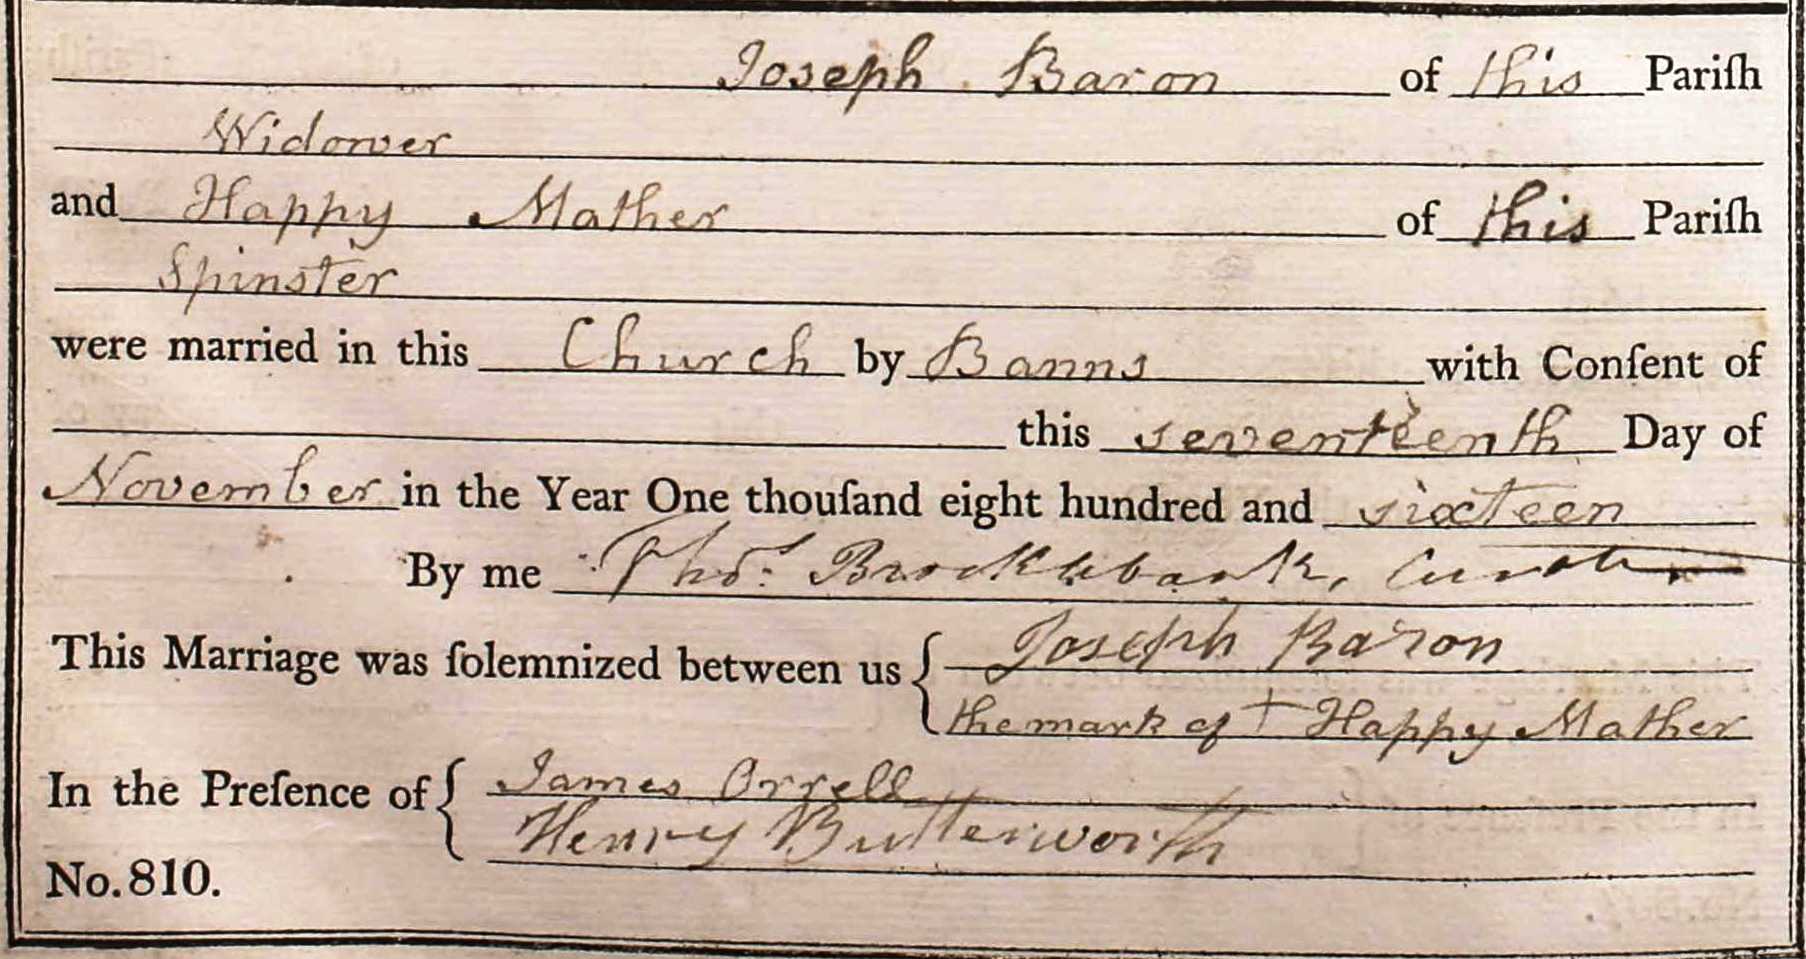 Joseph Baron of this Pariſh
Widower
and Happy Mather of this Pariſh
Spinster
were married in this Church by Banns with Conſent of
this seventeenth Day of
November in the Year One thouſand eight hundred and sixteen
By me Thos. Brocklebank, Curate
This Marriage was ſolemnized between us { Joseph Baron
the mark of + Happy Mather
In the Preſence of { James Orrell
Henry Butterworth
No. 810.